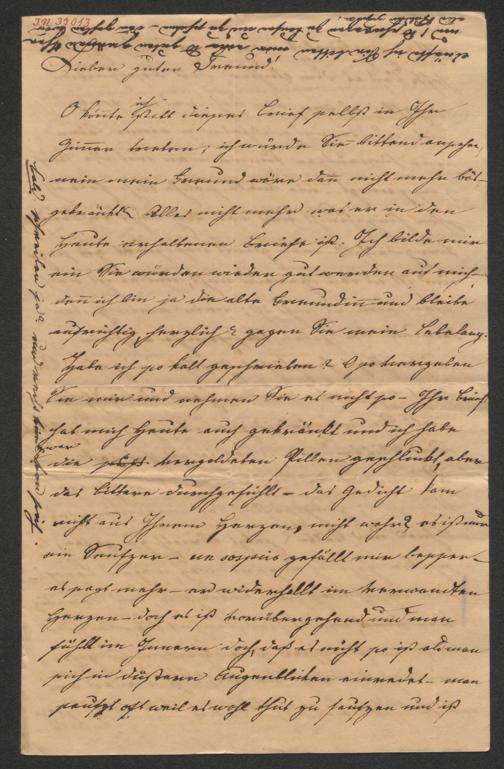 I.N. 39013
Lieber guter Freund!
O könnte ich statt dieses Brief selbst in Ihr
Zimmer treten; ich würde Sie bittend ansehen,
mein mein Freund wäre dan nicht mehr bös-
gekränkt Alles nicht mehr was er in den
Heute erhaltenen Briefe ist. Ich bilde mir
ein Sie würden wieder gut werden auf mich
den ich bin ja die alte Freundin und bleibe
aufrichtig herzlich gegen Sie mein Lebelang.
Habe ich so kalt geschrieben? O so vergeben
Sie mir und nehmen Sie es nicht so – Ihr Brief
hat mich Heute auch gekränkt und ich habe
zwar die vergoldeten Pillen geschluckt, aber
das bittere durchgefühlt – das Gedicht kam
nicht aus Ihrem Herzen, nicht wahr? es ist nur
ein Seufzer – un sospiro gefällt mir besser –
es sagt mehr – er widerhallt im verwandten
Herzen – doch es ist vorübergehend und man
fühlt im Innern doch, daß es nicht so ist als man
sich in düstern Augenblicken einredet – man
seufzt oft weil es wohl thut zu seufzen und ist